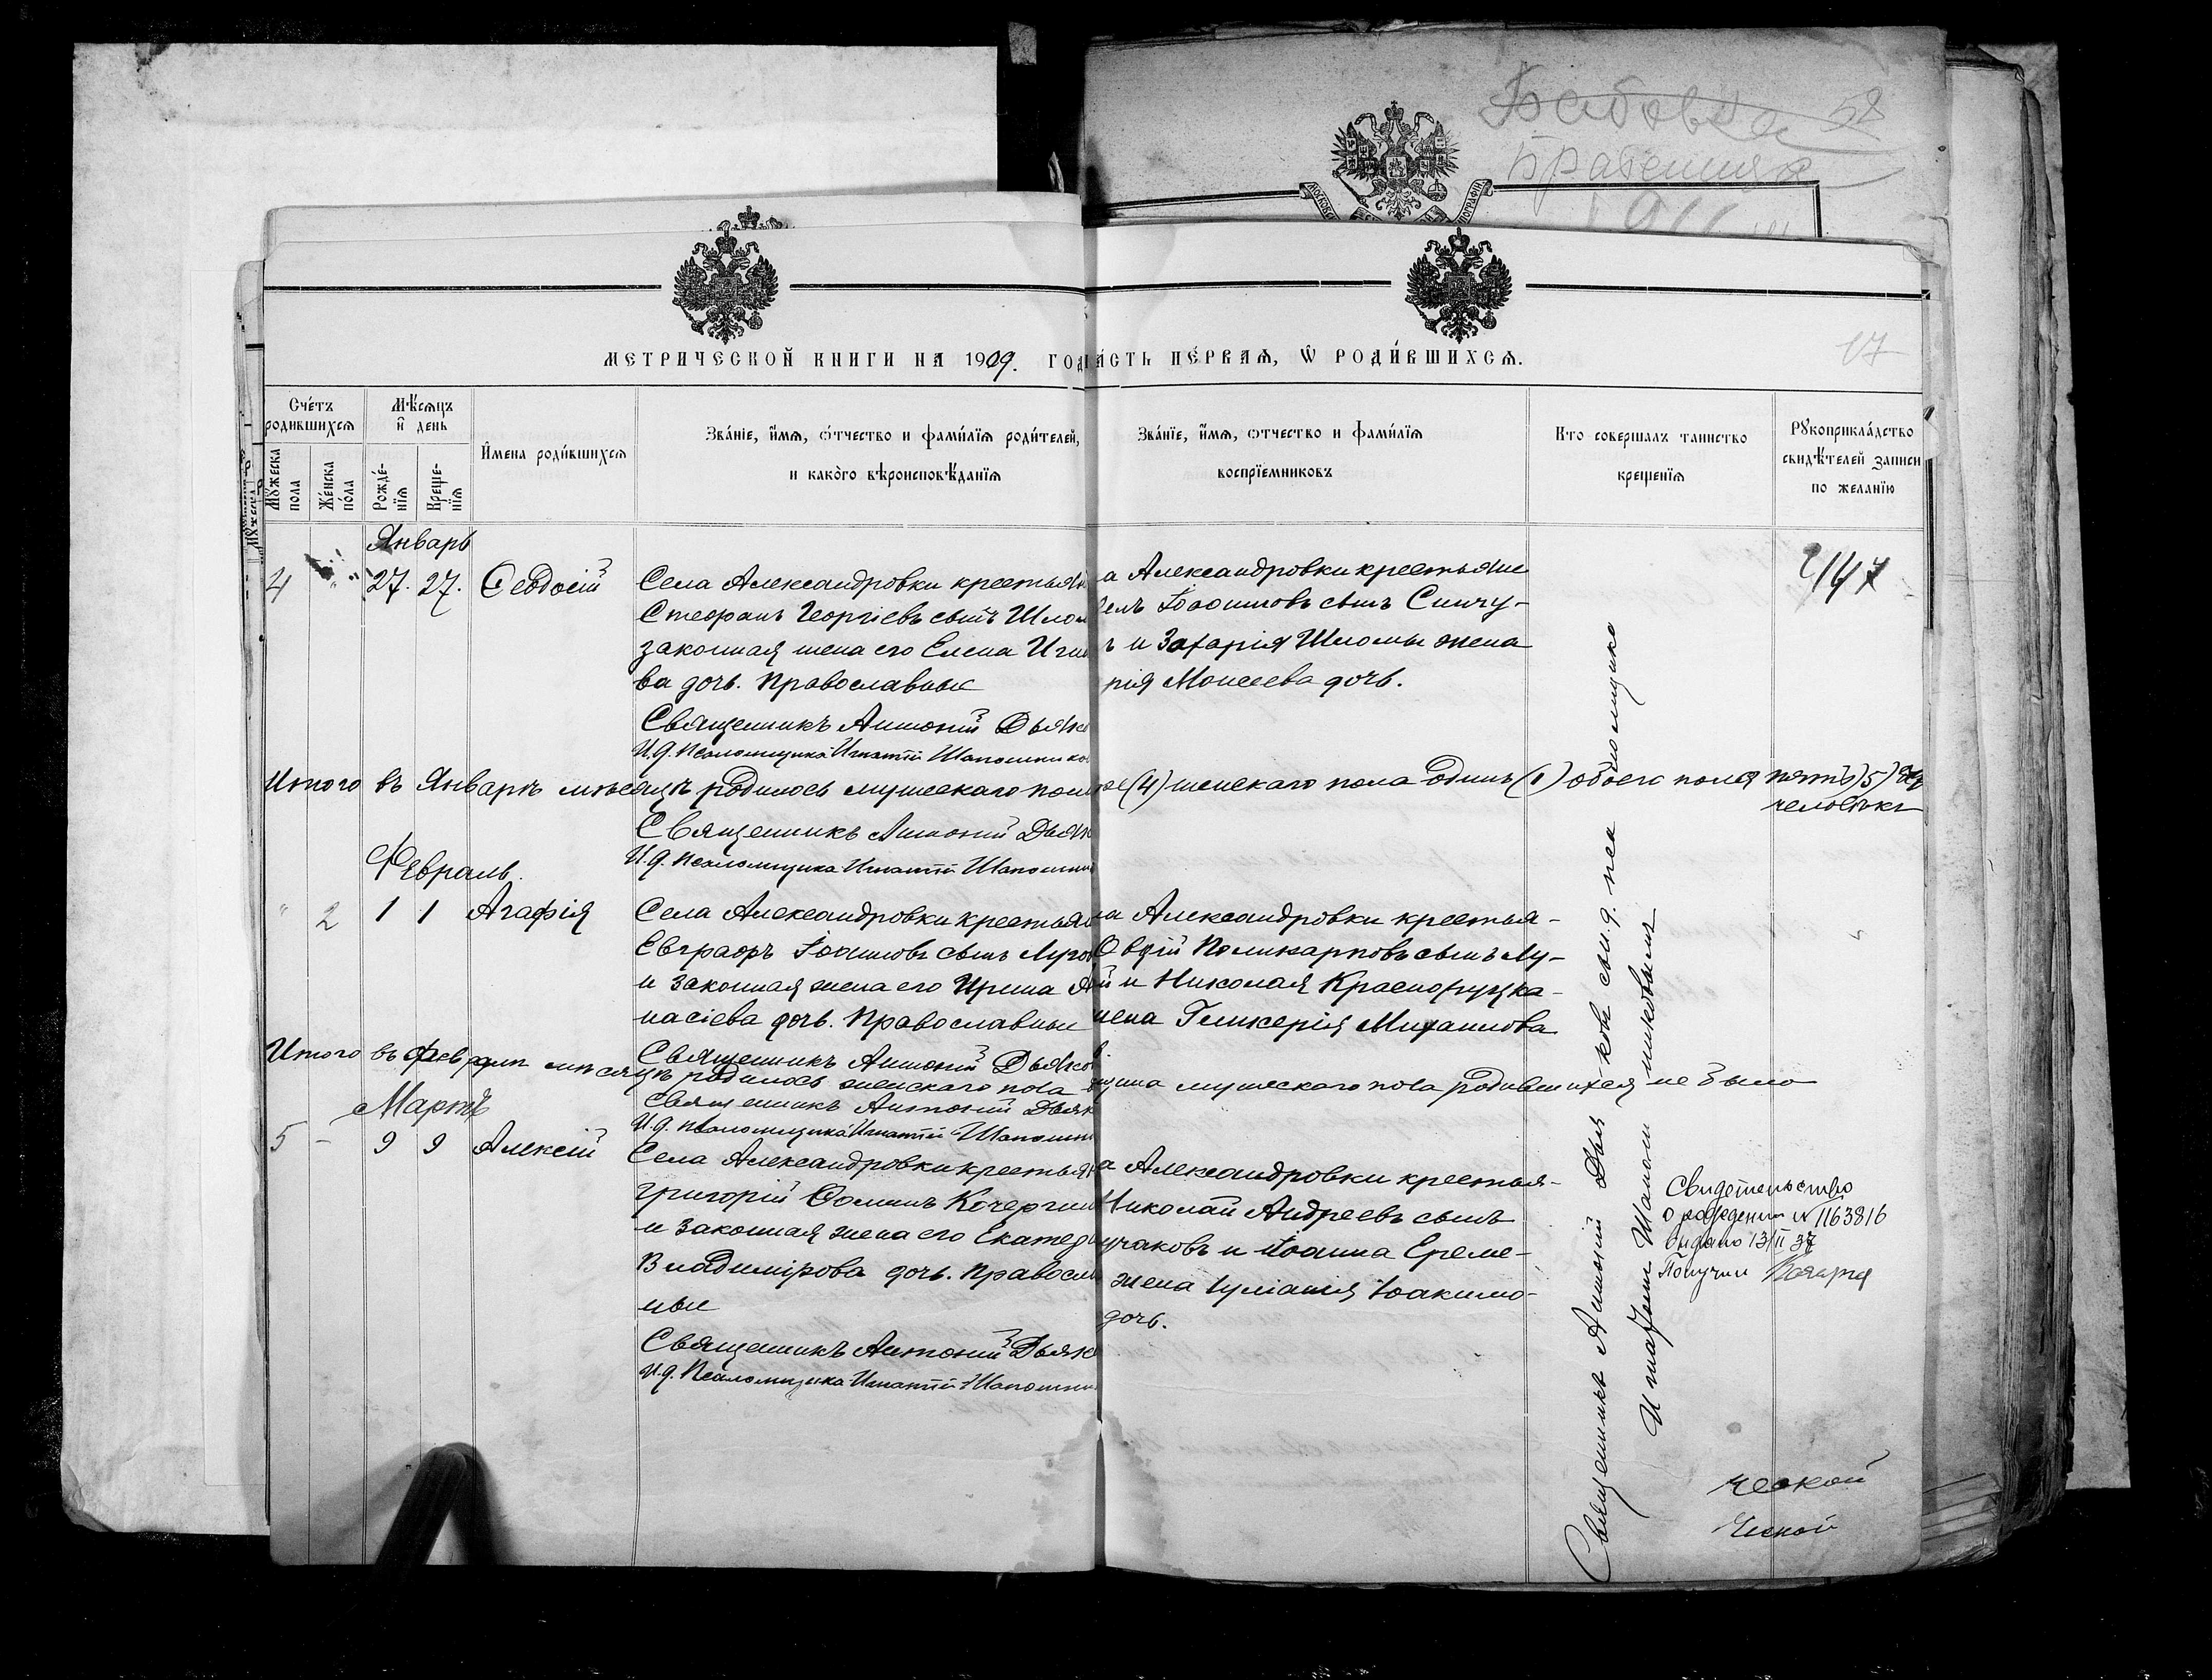 58
Бабовка
Правенния
1911
17
МЕТРИЧЕСКОЙ КНИГИ НА 1909. ГОД
ЧАСТЬ ПЕ́РВАѦ, Ѿ РОДИ́ВШИХСѦ.
Счéтъ родившихсѧ
Мѣ́сѧцъ и҆ день
Мꙋжеска пола
Жéнска пóла
Рождé-нїѧ
Креще-нїѧ
И҆мена роди́вшихсѧ
Звáнїе, и҆мѧ, ѻ҆́тчество и фами́лїѧ роди́телей,
и какóго вѣроисповѣ́данїѧ
Звáнїе, и҆мѧ, ѻтчество и фами́лїѧ
воспрїемниковъ
Кто совершалъ таинство
крещенїѧ
Рꙋкоприклáдство
свидѣ́телей записи
по желанїю
Январь
4 " 27. 27. Ѳеодосій
Села Александровки крестьян
Стефанъ Георгіевъ сынъ Шлом
законная жена его Елена Игна
ва дочь. Православные
Священникъ Антоній Дьяко
И.д. Псаломщика Игнатій Шапошнико
а Александровки крестьяне
елъ Іоакимовъ сынъ Синчу-
ъ и Захарія Шломы жена
рія Моисеева дочь.
2147
Итого въ Январѣ мѣсяцѣ родилось мужескаго пол ре (4) женскаго пола одинъ (1) обоего пола пять (5)
человѣкъ
Священникъ Антоній Дьяк
И.д. Псаломщика Игнатій Шапошни
Февраль.
" 2 1 1 Агафія
Села Александровки крестьян
Евграфъ Іоакимовъ сынъ Луго
и законная жена его Ирина А
насіева дочь. Православные
Священникъ Антоній Дьяков
ла Александровки крестья-
Овдій Поликарповъ сынъ Лу-
ой и Николая Краснокуцка-
жена Гликерія Михаилова
Итого въ Февралѣ мѣсяцѣ родилось женскаго пола дѣщна мужескаго пола родившихся не было
Священникъ Антоній Дьяк
И.д. Псаломщика Игнатій Шапошни
Мартъ
5 - 9 9 Алексій
Села Александровки крестьян
Григорій Ѳоминъ Кочергин
и законная жена его Екатер
Владимірова дочь. Правосла
ные
Священникъ Антоній Дьяко
И.д. Псаломщика Игнатій Шапошни
а Александровки крестья-
Николай Андреевъ сынъ
учаковъ и Іоанна Ереме-
жена Іуліанія Іоакимо-
дочь.
Священникъ Антоній Дья ковъ съ и.д. пса ломщика
Игнатіемъ Шапош никовымъ
Свидетельство
о рождении № 1163816
выдано 13/II 37
Получил
ческой
ческой